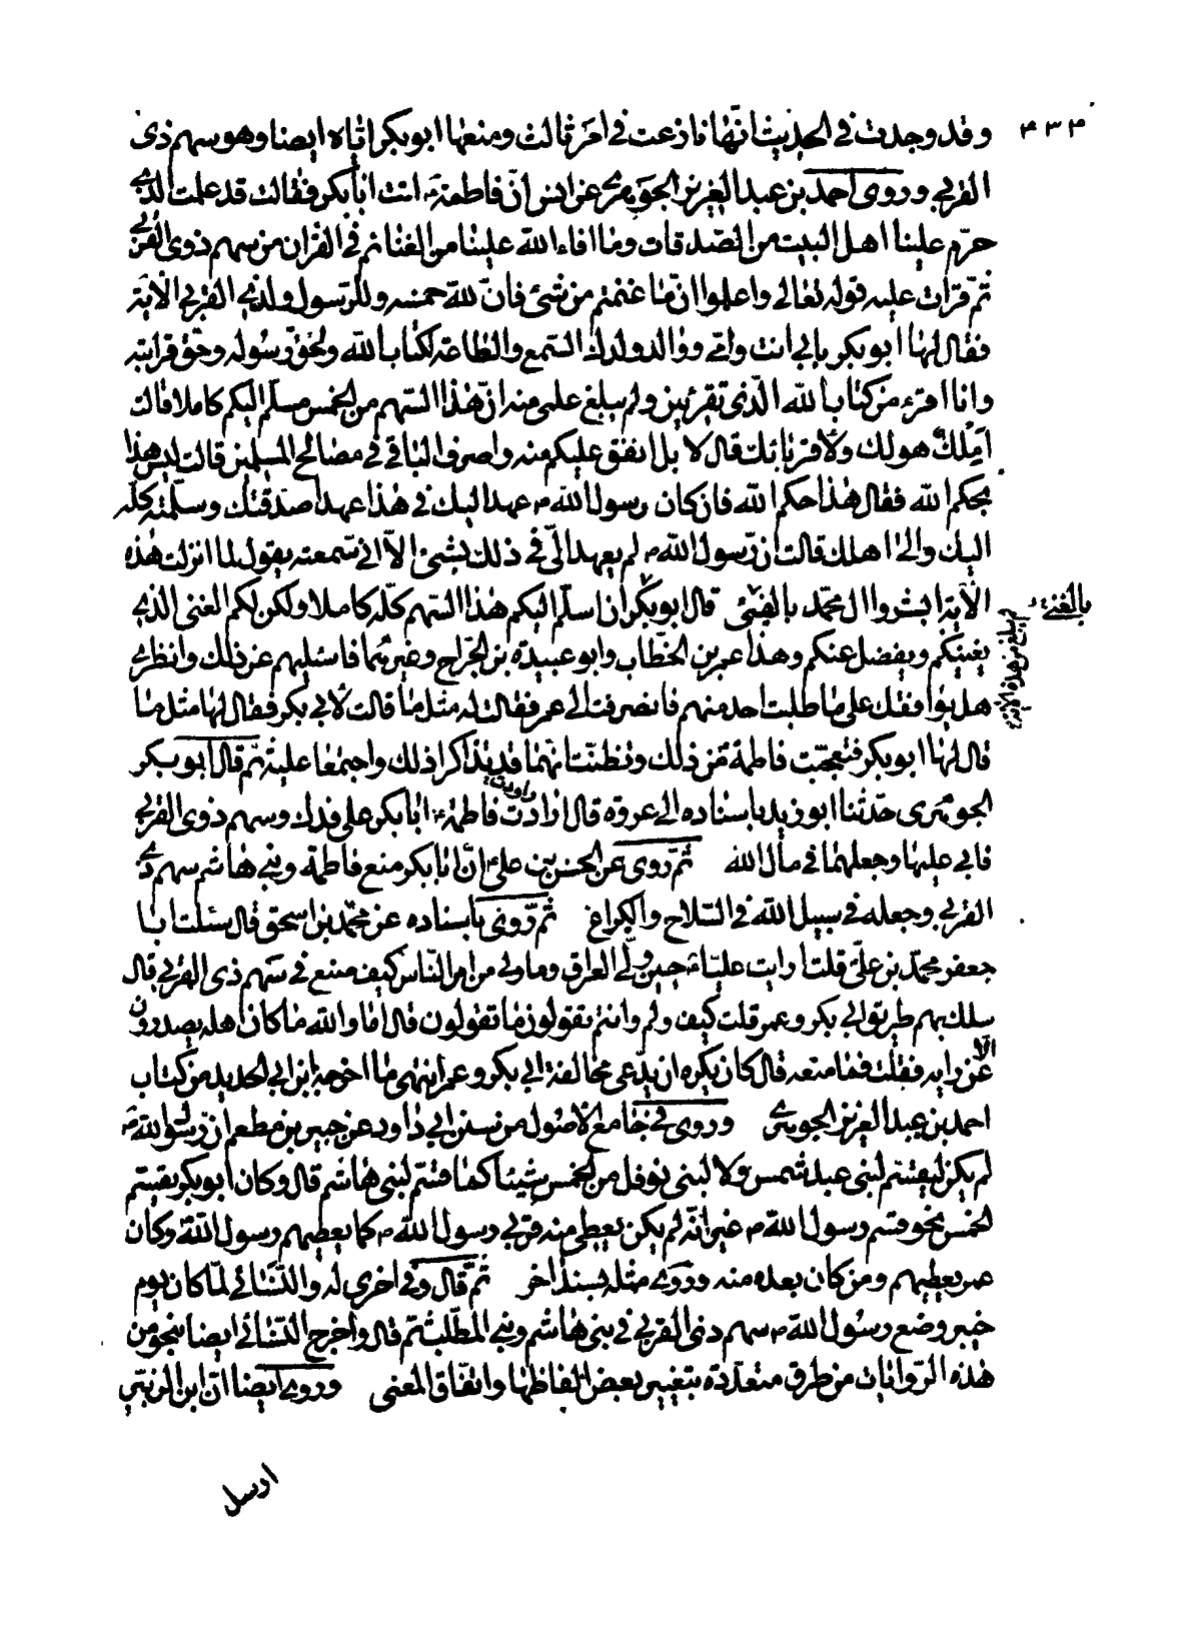 ۴۳۴
وقد وجدت في الحديث انّها نازعت في امر ثالث ومنعها ابوبكر ايّاه ايضا وهو سهم ذى
القربى وروى احمد بن عبد العزيز الجوهرى عن انس انّ فاطمة ع اتت ابابكر فقالت قد علمت الذى
حرّم علينا اهل البيت من الصّدقات وما افاء الله علينا من الغنائم في القران من سهم ذوى القربى
ثمّ قرات عليه قوله تعالى واعلموا انّما غنمتم من شئ فانّ لله خمسه وللرّسول ولذى القربى الاية
فقال لها ابوبكر بابى انت وامّى ووالد ولدك السّمع والطاعة لكتاب الله ولحقّ رسوله وحقّ قرابته
وانا اقرء من كتاب الله الّذى تقرئين ولم يبلغ علمى منه انّ هذا السّهم من الخمس مسلّم اليكم كاملا قالت
افلك هو لك ولاقربائك قال لا بل انفق عليكم منه واصرف الباقى في مصالح المسلمين قالت ليس هذا
بحكم الله فقال هذا حكم الله فان كان رسول الله ص عهد اليك في هذا عهدا صدّقتك وسلّمته كلّه
اليك والى اهلك قالت انّ رسول الله ص لم يعهد الىّ في ذلك بشئ الاّ انى سمعته يقول لما انزلت هذه
الاية ابشروا ال محمّد بالفئ قال ابوبكر ان اسلّم اليكم هذا السّهم كلّه كاملا ولكن لكم الغنى الذى
بالغنى
لم يبلغ من هذه الاية
يغنيكم ويفضل عنكم وهذا عمر بن الخطّاب وابو عبيدة بن الجرّاح وغيرهما فاسئليهم عن ذلك وانظرى
هل يوافقك على ما طلبت احد منهم فانصرفت الى عمر فقالت له مثل ما قالت لابى بكر فقال لها مثل ما
قال لها ابوبكر فتعجّبت فاطمة من ذلك وتظنّت انّهما قد تذاكرا ذلك واجتمعا عليه ثمّ قال ابوبكر
الجوهرى حدّثنا ابو زيد باسناده الى عروة قال ارادت فاطمة ع ابابكر على فدك وسهم ذوى القربى
فابى عليها وجعلهما في مال الله ثمّ روى عن الحسن بن علىّ انّ ابابكر منع فاطمة وبنى هاشم سهم ذى
القربى وجعله في سبيل الله في السّلاح والكراع ثمّ روى باسناده عن محمّد بن اسحق قال سئلت ابا
جعفر محمّد بن علىّ قلت ارايت عليّا ع حين ولّى العراق وما ولى من امر النّاس كيف صنع في سهم ذى القربى قال
سلك بهم طريق ابى بكر وعمر قلت كيف ولم وانتم تقولون ما تقولون قال اما والله ما كان اهله يصدرون
الاّ
عن رايه فقلت فما منعه قال كان يكره ان يدّعى مخالفة ابى بكر وعمر انتهى ما اخرجه ابن ابى الحديد من كتاب
احمد بن عبد العزيز الجوهرى وروى في جامع الاصول من سنن ابى داود عن جبير بن مطعم انّ رسول الله ص
لم يكن ليقسم لبنى عبد شمس ولا لبنى نوفل من الخمس شيئا كما قسم لبنى هاشم قال وكان ابوبكر يقسم
الخمس نحو قسم رسول الله ص غير انّه لم يكن يعطى منه قربى رسول الله ص كما يعطيهم رسول الله ص وكان
عمر يعطيهم ومن كان بعده منه وروى مثله بسند اخر ثمّ قال وفي اخرى له والنّسائى لمّا كان يوم
خيبر وضع رسول الله ص سهم ذى القربى في بنى هاشم وبنى المطّلب ثم قال واخرج النّسائى ايضا بنحو من
هذه الرّوايات من طرق متعدّدة بتغيير بعض الفاظها واتّفاق المعنى وروى ايضا انّ ابن الزبير
ارسل